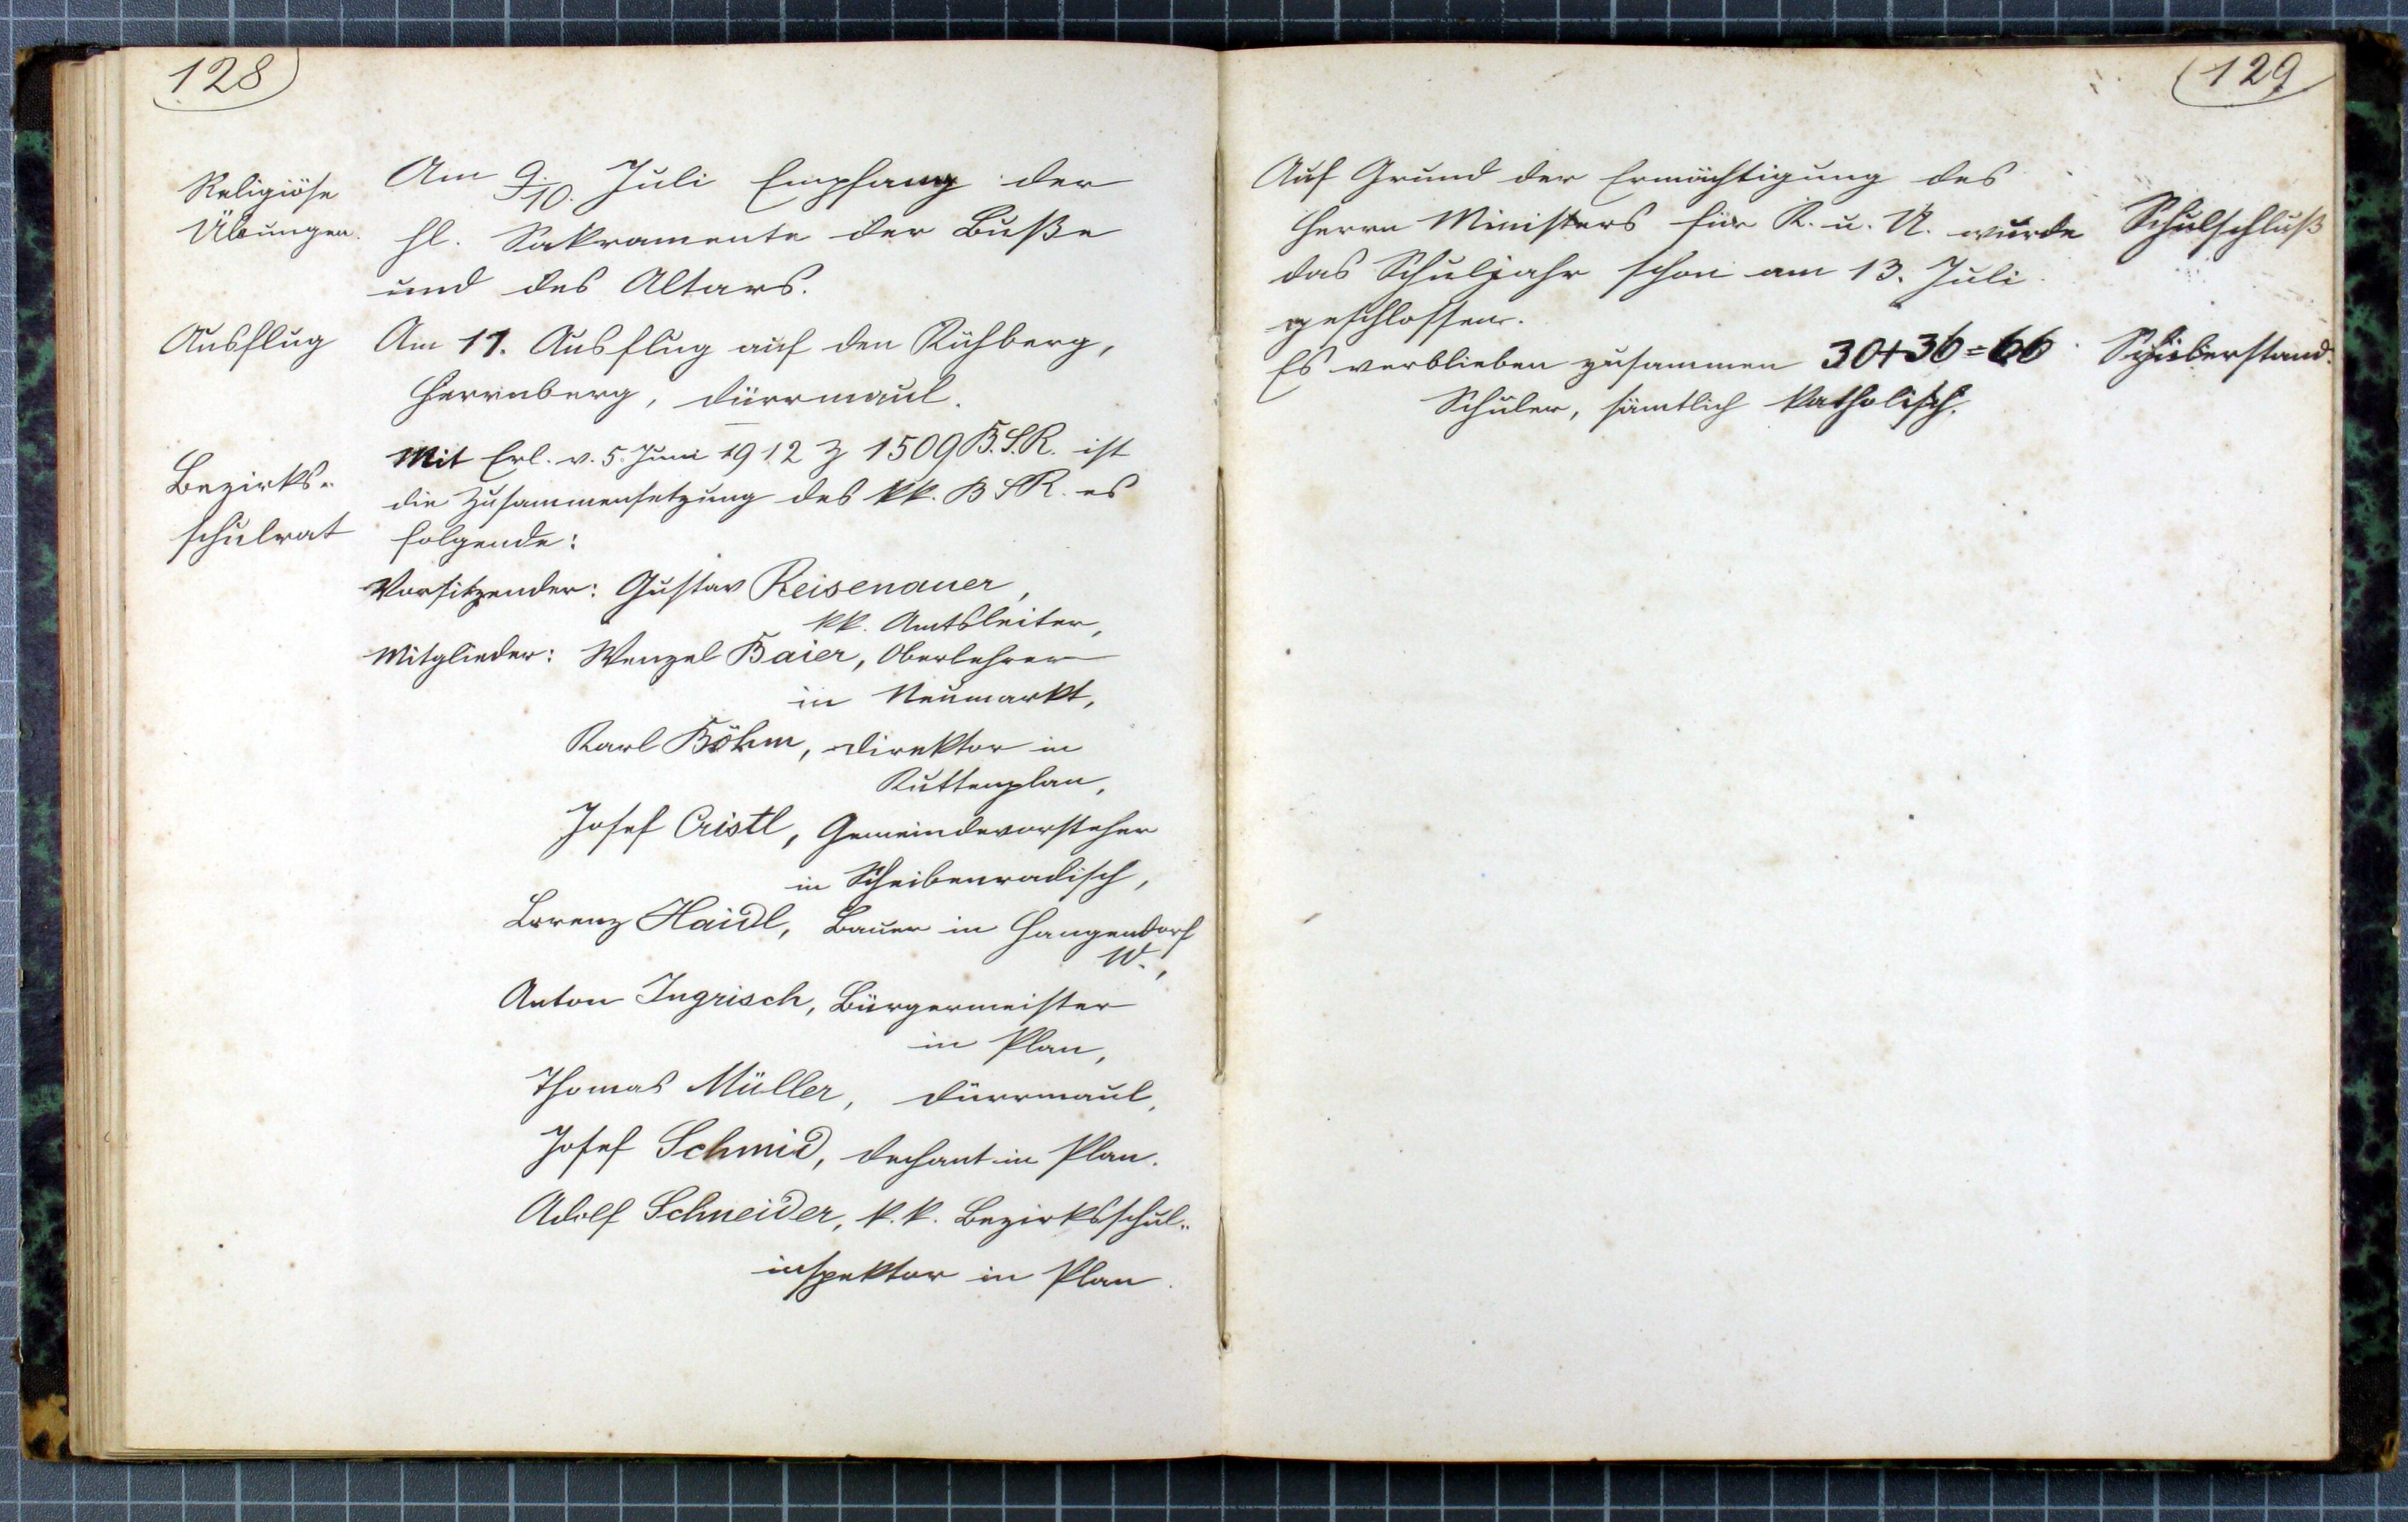 128
Religiöse
Übungen.
Am 9./10. Juli Empfang der
hl. Sakramente der Buße
und des Altars.
Ausflug
Am 11. Ausflug auf den Kühberg,
Herrnberg, Dürrmaul.
Bezirks-
schulrat
Mit Erl. v. 5. Juni 1912 Z 1509 B.S.R. ist
die Zusammensetzung des kk. BSR. es
folgende:
Vorsitzender: Gustav Reisenauer,
kk. Amtsleiter,
Mitglieder: Wenzel Baier, Oberlehrer
in Neumarkt,
Karl Böhm, Direktor in
Kuttenplan,
Josef Cristl, Gemeindevorsteher
in Scheibenradisch,
Lorenz Haidl, Bauer in Hangendorf
W.,
Anton Ingrisch, Bürgermeister
in Plan,
Thomas Müller, Dürrmaul,
Josef Schmid, Dechant in Plan.
Adolf Schneider, k.k. Bezirksschul-
inspektor in Plan.
129
Auf Grund der Ermächtigung des
Herrn Ministers für K. u. U. wurde
das Schuljahr schon am 13. Juli
geschlossen.
Schulschluß
Es verblieben zusammen 30+36=66
Schüler, sämtlich katholisch.
Schülerstand.